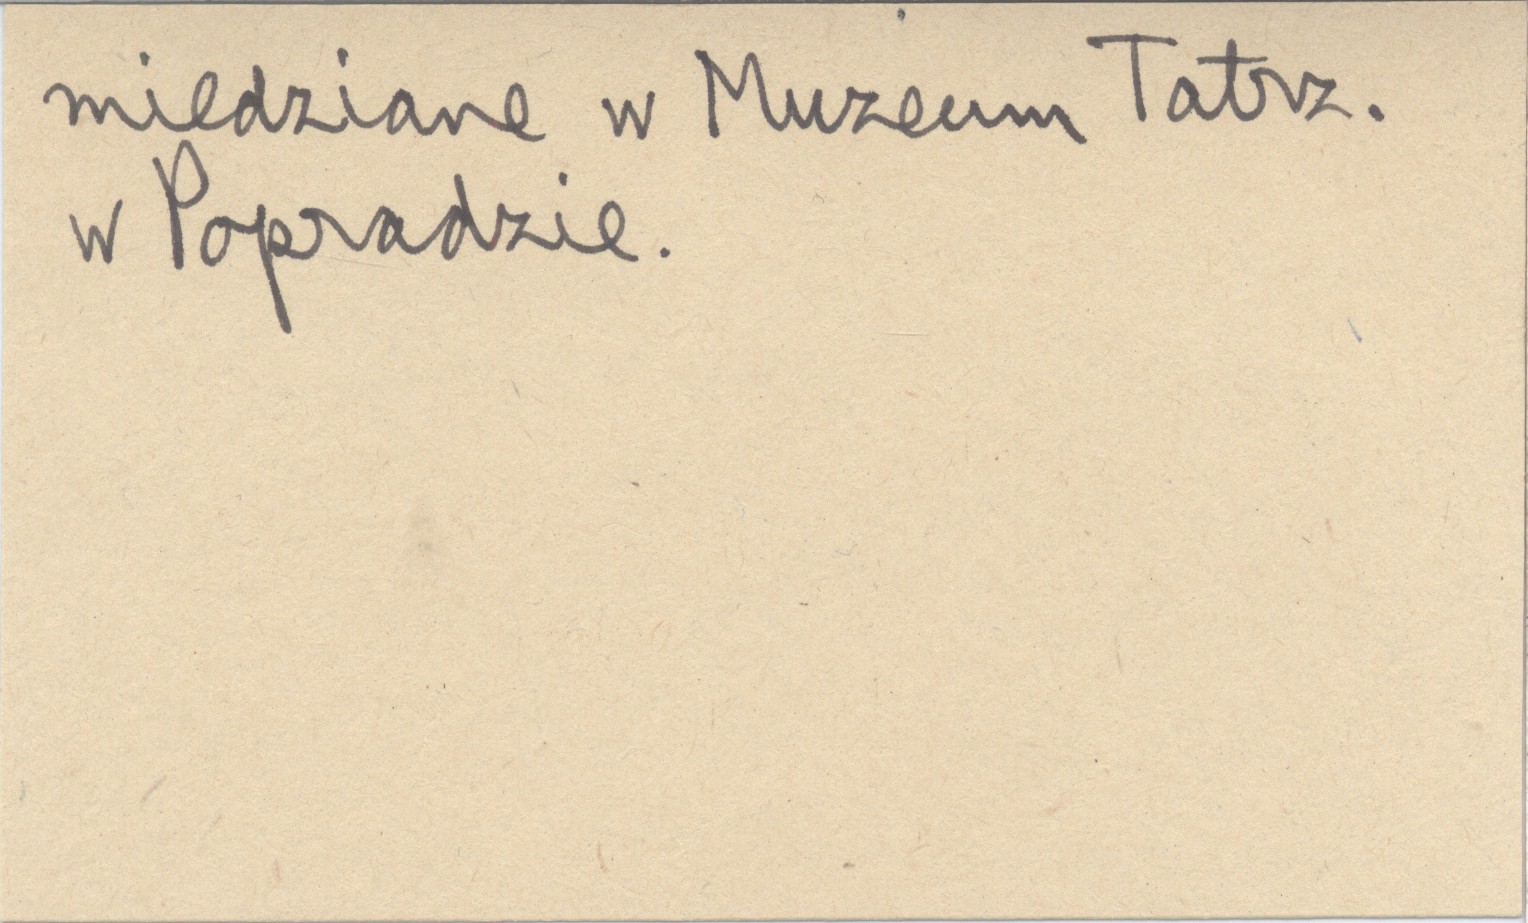 miedziane w Muzeum Tatrz.
w Popradzie.